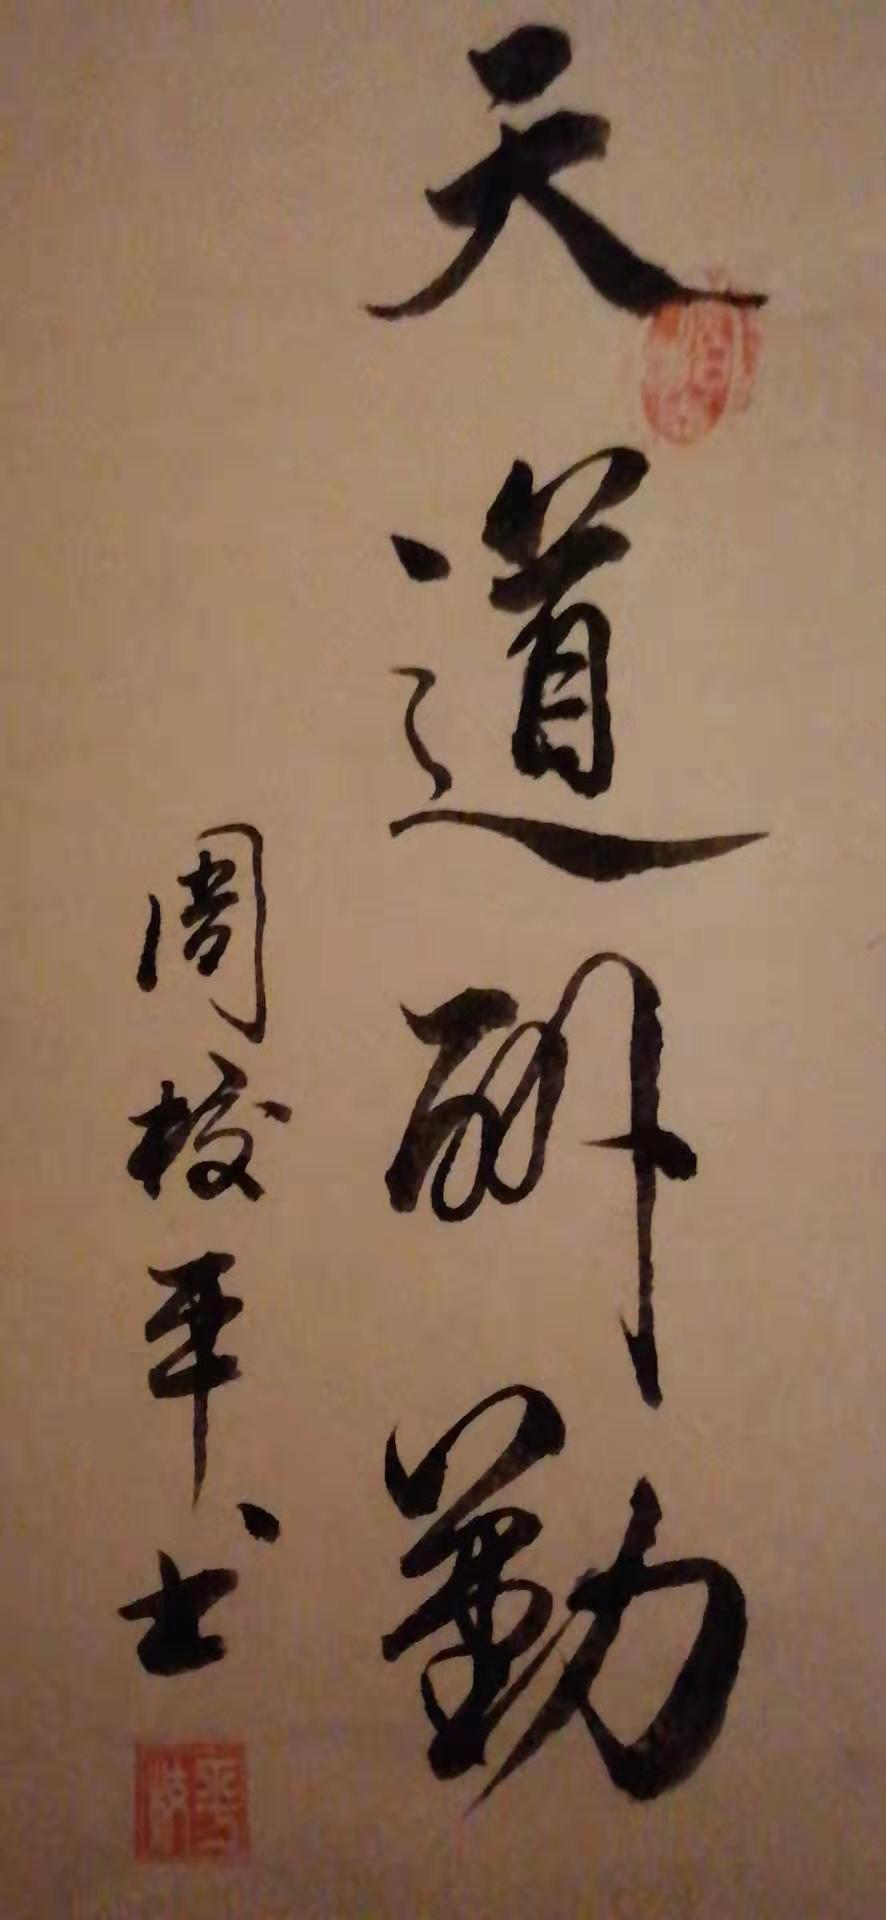 天道酬勤
周校平书